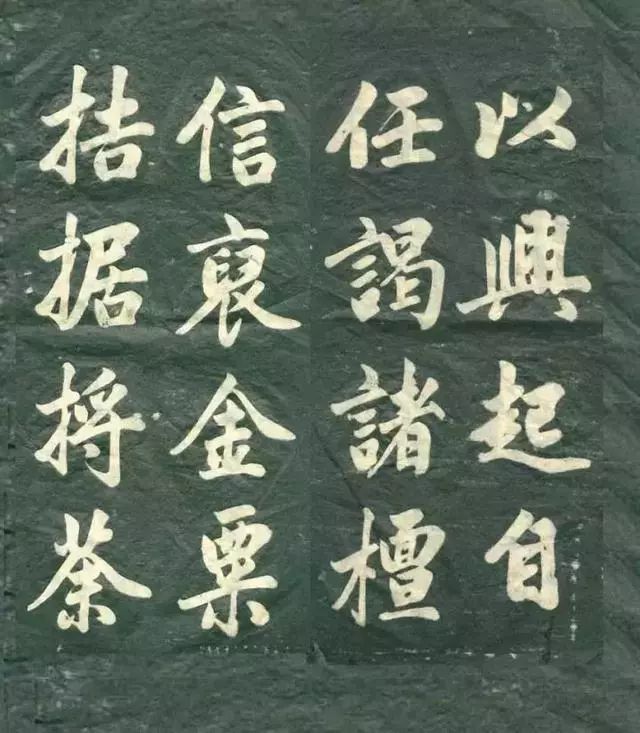 以興起自
任謁諸檀
信裒金粟
拮据捋荼